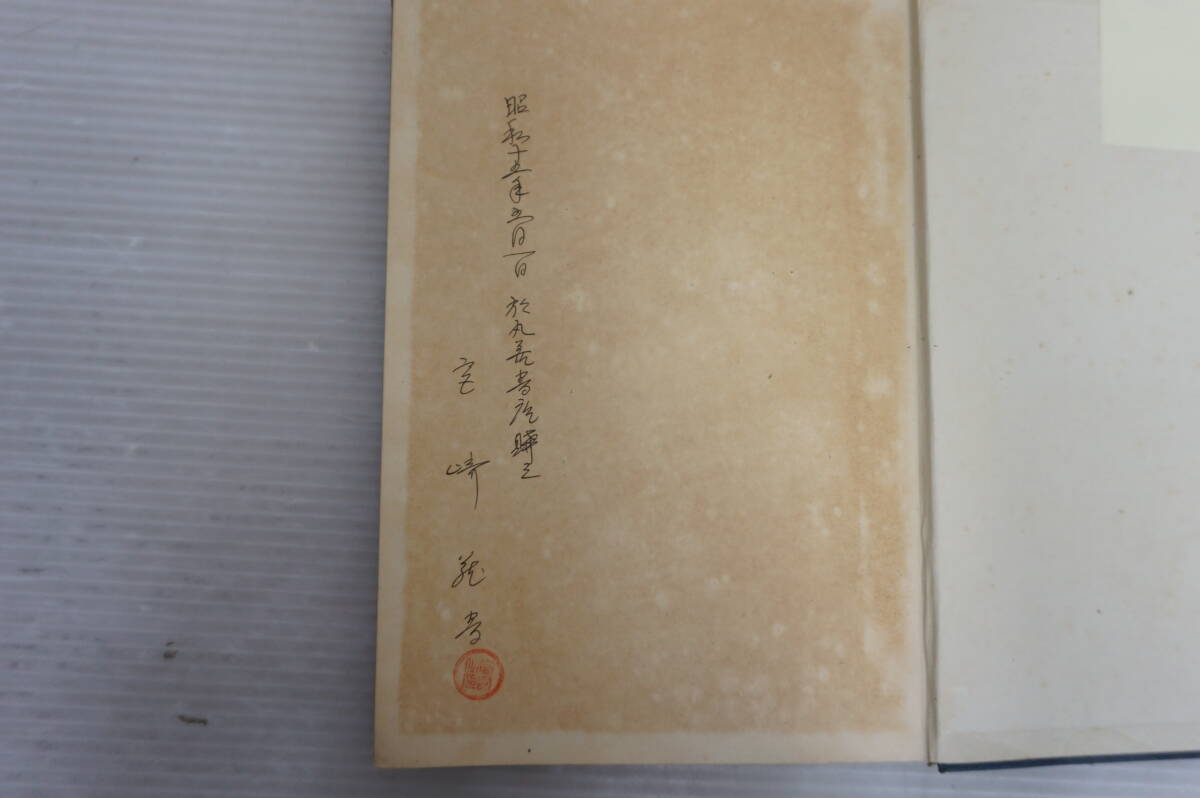 昭和十五年五月一日 於丸善書店購之
宮崎蔵書